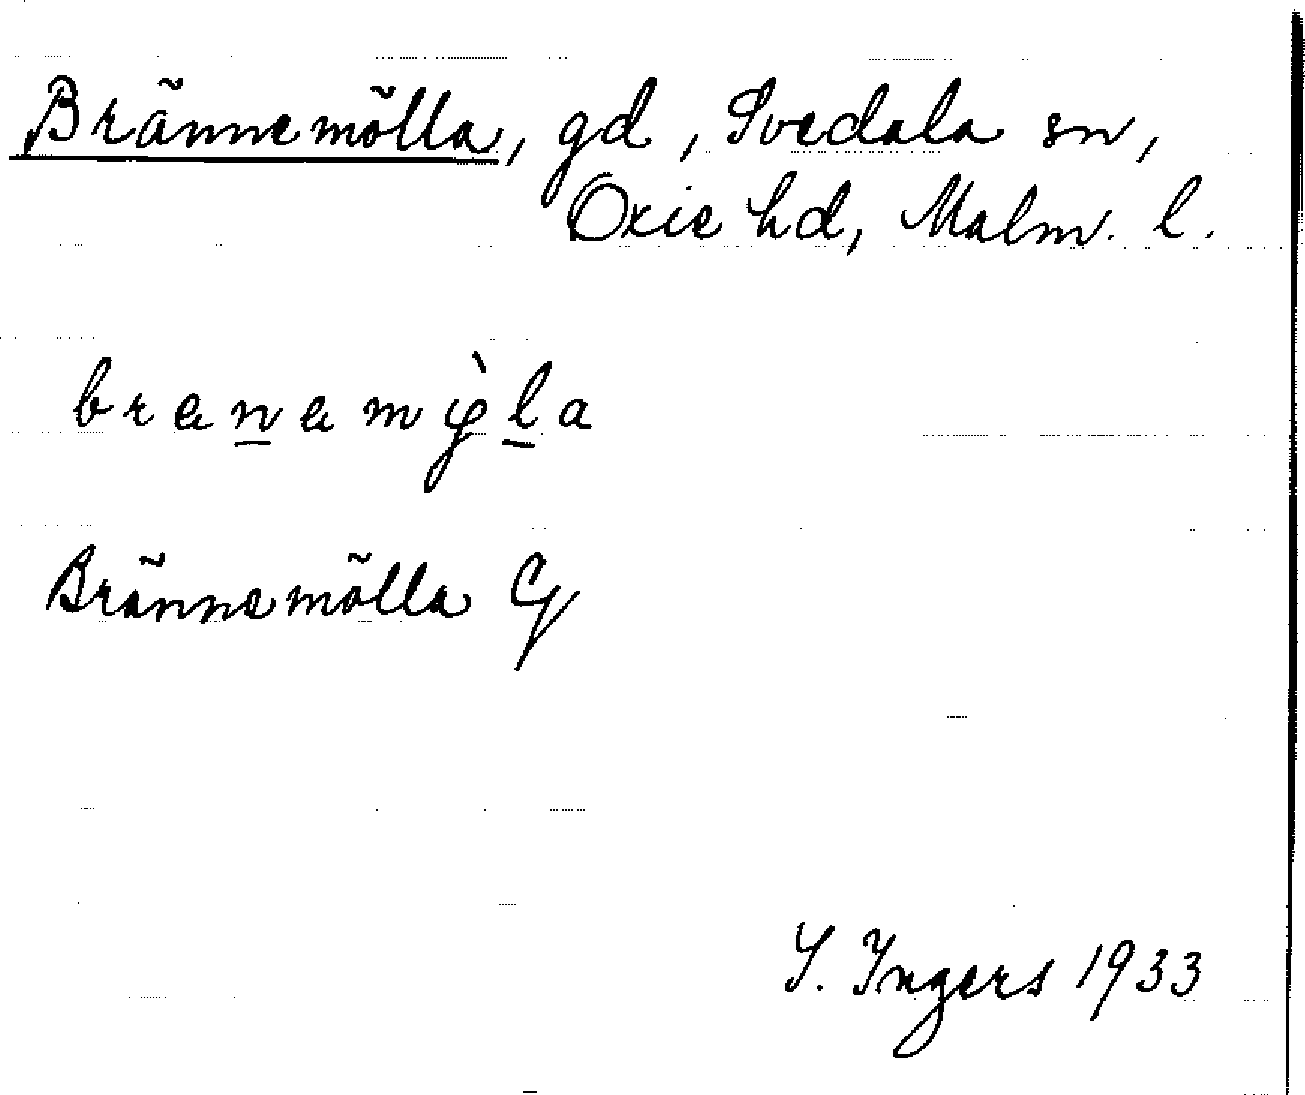 Brännemölla, gd, Svedala sn,
Oxie hd, Malm. l.
brænæmỳla
Brännemölla G
I. Ingers 1933